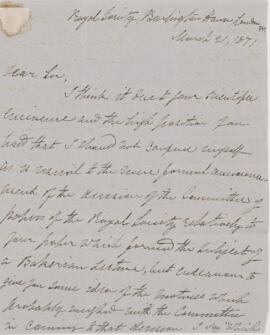 Royal Society, Burlington House, London
March 21, 1871
Dear Sir,
I think it due to your scientific
eminence and the high position you
hold that I should not confine myself
as usual to the mere formal announce-
ment of the decision of the Committee of
papers of the Royal Society relatively to
your paper which formed the subject of
a Bakerian Lecture, but endeavour to
give you some idea of the motives which
probably weighed with the Committee
in coming to that decision. I say